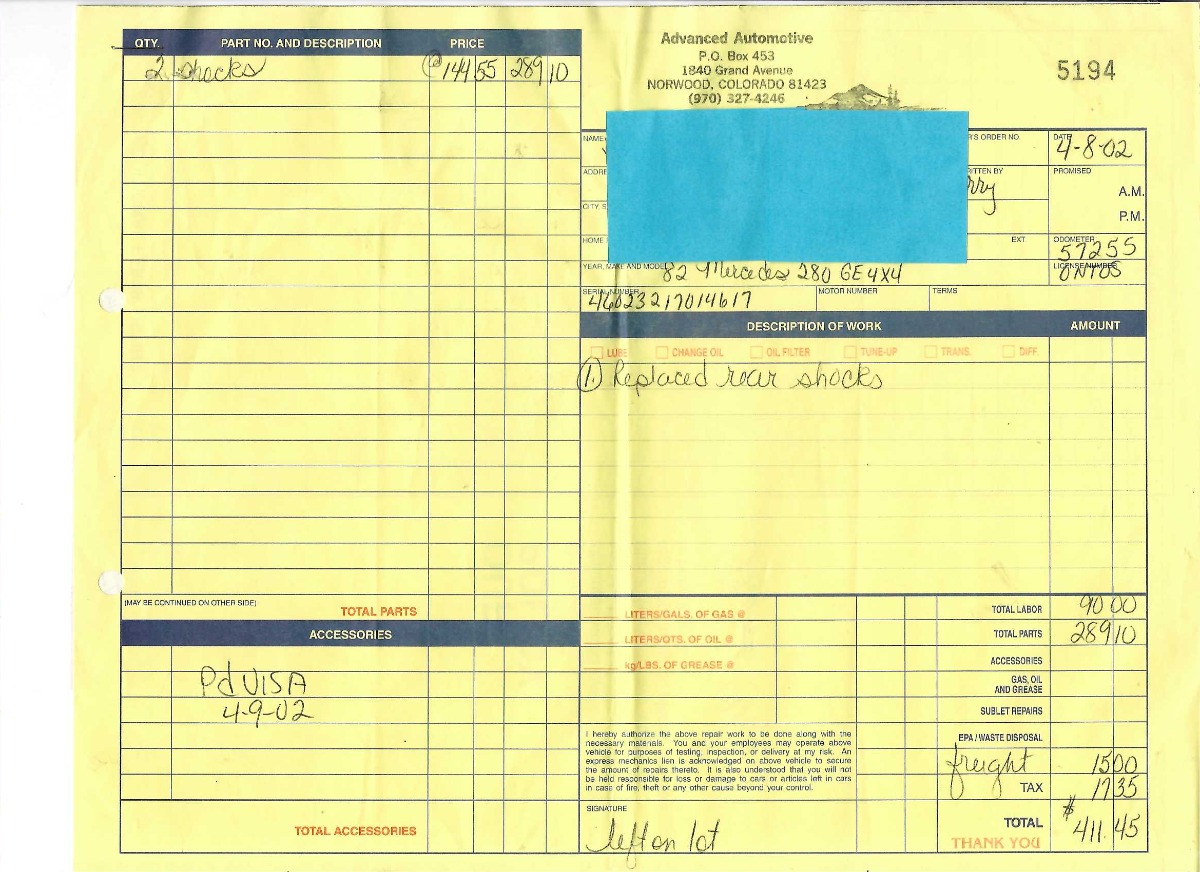 QTY. PART NO. AND DESCRIPTION PRICE
2 shocks @ 144 55 289 10
(MAY BE CONTINUED ON OTHER SIDE)
TOTAL PARTS
ACCESSORIES
Pd VISA
4-9-02
TOTAL ACCESSORIES
Advanced Automotive
P.O. Box 453
1840 Grand Avenue
NORWOOD, COLORADO 81423
(970) 327-4246
5194
NAME
'S ORDER NO.
DATE
4-8-02
ADDRE
ITTEN BY
rry
PROMISED
A.M.
P.M.
CITY, S
HOME
EXT
ODOMETER
57255
YEAR, MAKE AND MODEL
82 Mercedes 280 GE 4x4
LICENSE NUMBER
SERIAL NUMBER
46023217014617
MOTOR NUMBER
TERMS
DESCRIPTION OF WORK AMOUNT
LUBE CHANGE OIL OIL FILTER TUNE-UP TRANS. DIFF.
1. Replaced rear shocks
LITERS/GALS. OF GAS @
LITERS/QTS. OF OIL @
kg/LBS. OF GREASE @
TOTAL LABOR 90 00
TOTAL PARTS 289 10
ACCESSORIES
GAS, OIL
AND GREASE
SUBLET REPAIRS
EPA / WASTE DISPOSAL
freight 15 00
TAX 17 35
TOTAL $ 411.45
THANK YOU
I hereby authorize the above repair work to be done along with the
necessary materials. You and your employees may operate above
vehicle for purposes of testing, inspection, or delivery at my risk. An
express mechanics lien is acknowledged on above vehicle to secure
the amount of repairs thereto. It is also understood that you will not
be held responsible for loss or damage to cars or articles left in cars
in case of fire, theft or any other cause beyond your control.
SIGNATURE
left on lot